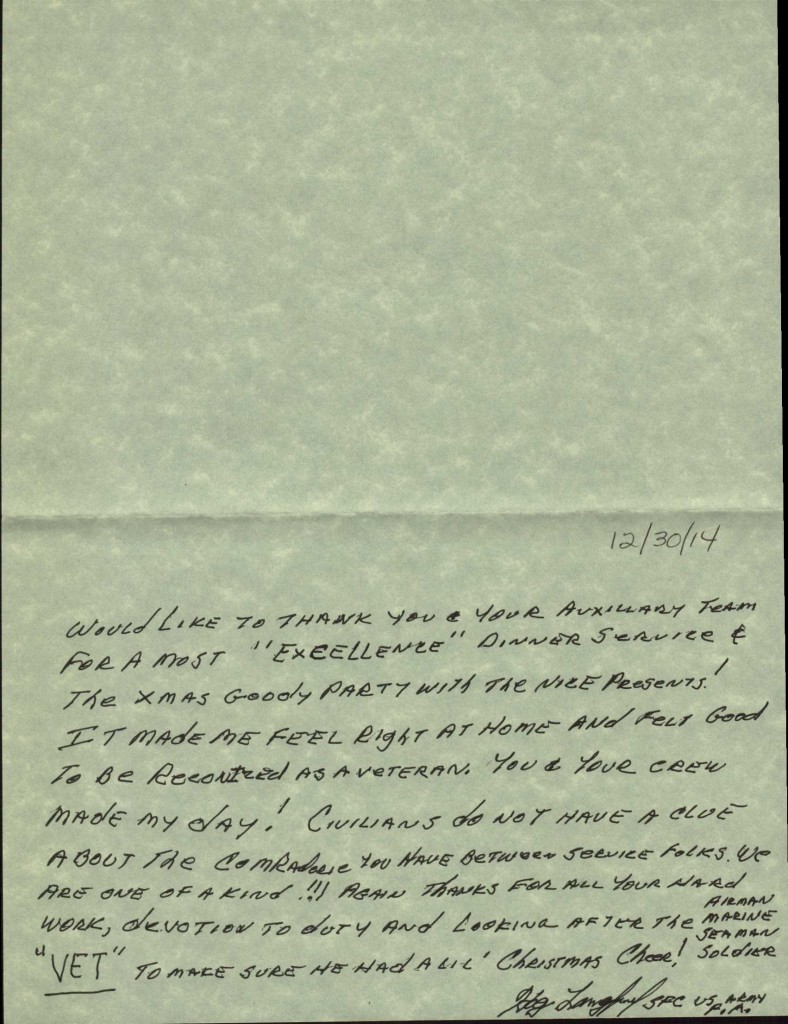 12/30/14
WOULD LIKE TO THANK YOU & YOUR AUXILLARY TEAM
FOR A MOST "EXCELLENCE" DINNER SERVICE &
THE XMAS GOODY PARTY WITH THE NICE PRESENTS!
IT MADE ME FEEL RIGHT AT HOME AND FELT GOOD
TO BE RECONIZED AS A VETERAN. YOU & YOUR CREW
MADE MY DAY! CIVILIANS DO NOT HAVE A CLUE
ABOUT THE COMRADERIE YOU HAVE BETWEEN SERVICE FOLKS. WE
ARE ONE OF A KIND!!! AGAIN THANKS FOR ALL YOUR HARD
WORK, DEVOTION TO DUTY AND LOOKING AFTER THE AIRMAN
MARINE
SEAMAN
SOLDIER
"VET" TO MAKE SURE HE HAD A LIL' CHRISTMAS CHEER!
SFC US ARMY